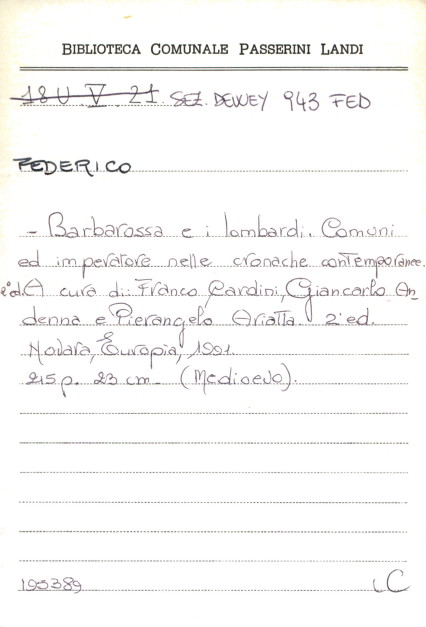 BIBLIOTECA COMUNALE PASSERINI LANDI
18U V 21. SEZ. DEWEY 943 FED
FEDERICO
- Barbarossa e i lombardi. Comuni
ed imperatore nelle cronache contemporanee.
2ªed. A cura di: Franco Cardini, Giancarlo An
denna e Pierangelo Ariatta. 2ªed.
Novara, Europìa, 1991.
215 p. 23 cm - (Medioevo).
195389 LC